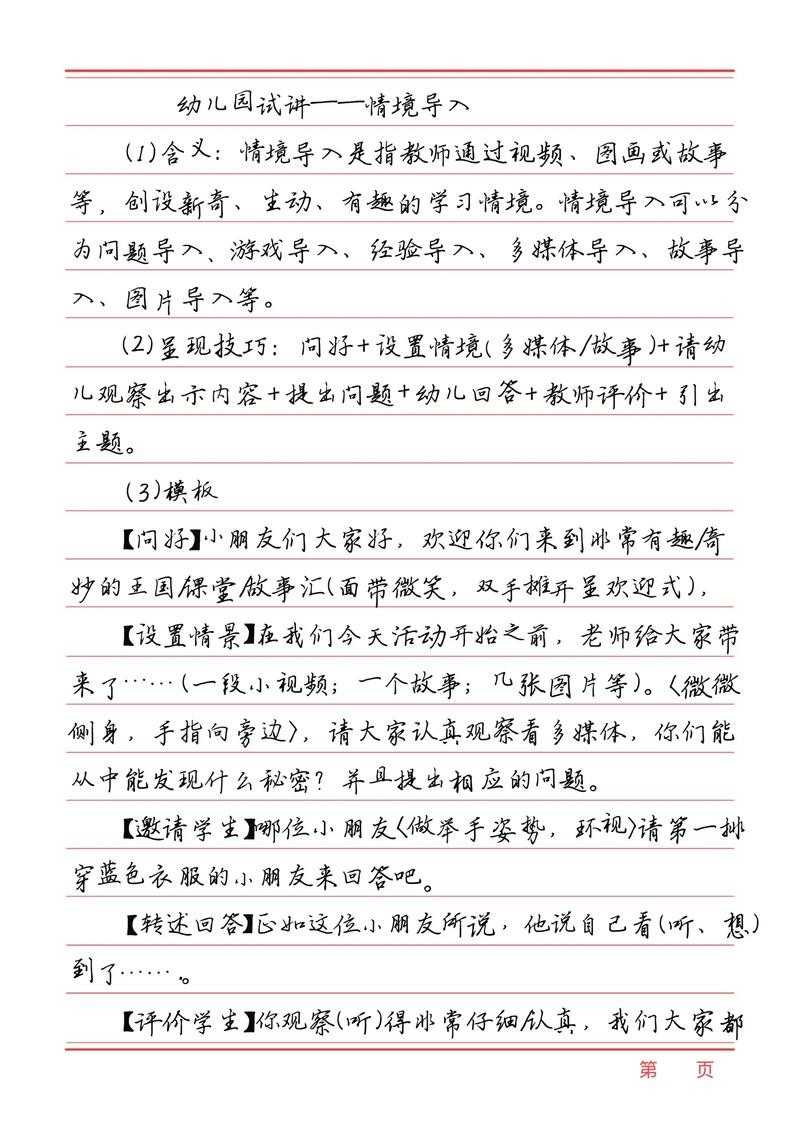 幼儿园试讲——情境导入
(1)含义：情境导入是指教师通过视频、图画或故事
等，创设新奇、生动、有趣的学习情境。情境导入可以分
为问题导入、游戏导入、经验导入、多媒体导入、故事导
入、图片导入等。
(2)呈现技巧：问好+设置情境(多媒体/故事)+请幼
儿观察出示内容+提出问题+幼儿回答+教师评价+引出
主题。
(3)模板
【问好】小朋友们大家好，欢迎你们来到非常有趣/奇
妙的王国/课堂/故事汇(面带微笑，双手摊开呈欢迎式)，
【设置情景】在我们今天活动开始之前，老师给大家带
来了……(一段小视频；一个故事；几张图片等)。〈微微
侧身，手指向旁边〉，请大家认真观察看多媒体，你们能
从中能发现什么秘密？并且提出相应的问题。
【邀请学生】哪位小朋友〈做举手姿势，环视〉请第一排
穿蓝色衣服的小朋友来回答吧。
【转述回答】正如这位小朋友所说，他说自己看(听、想)
到了……。
【评价学生】你观察(听)得非常仔细/认真，我们大家都
第 页